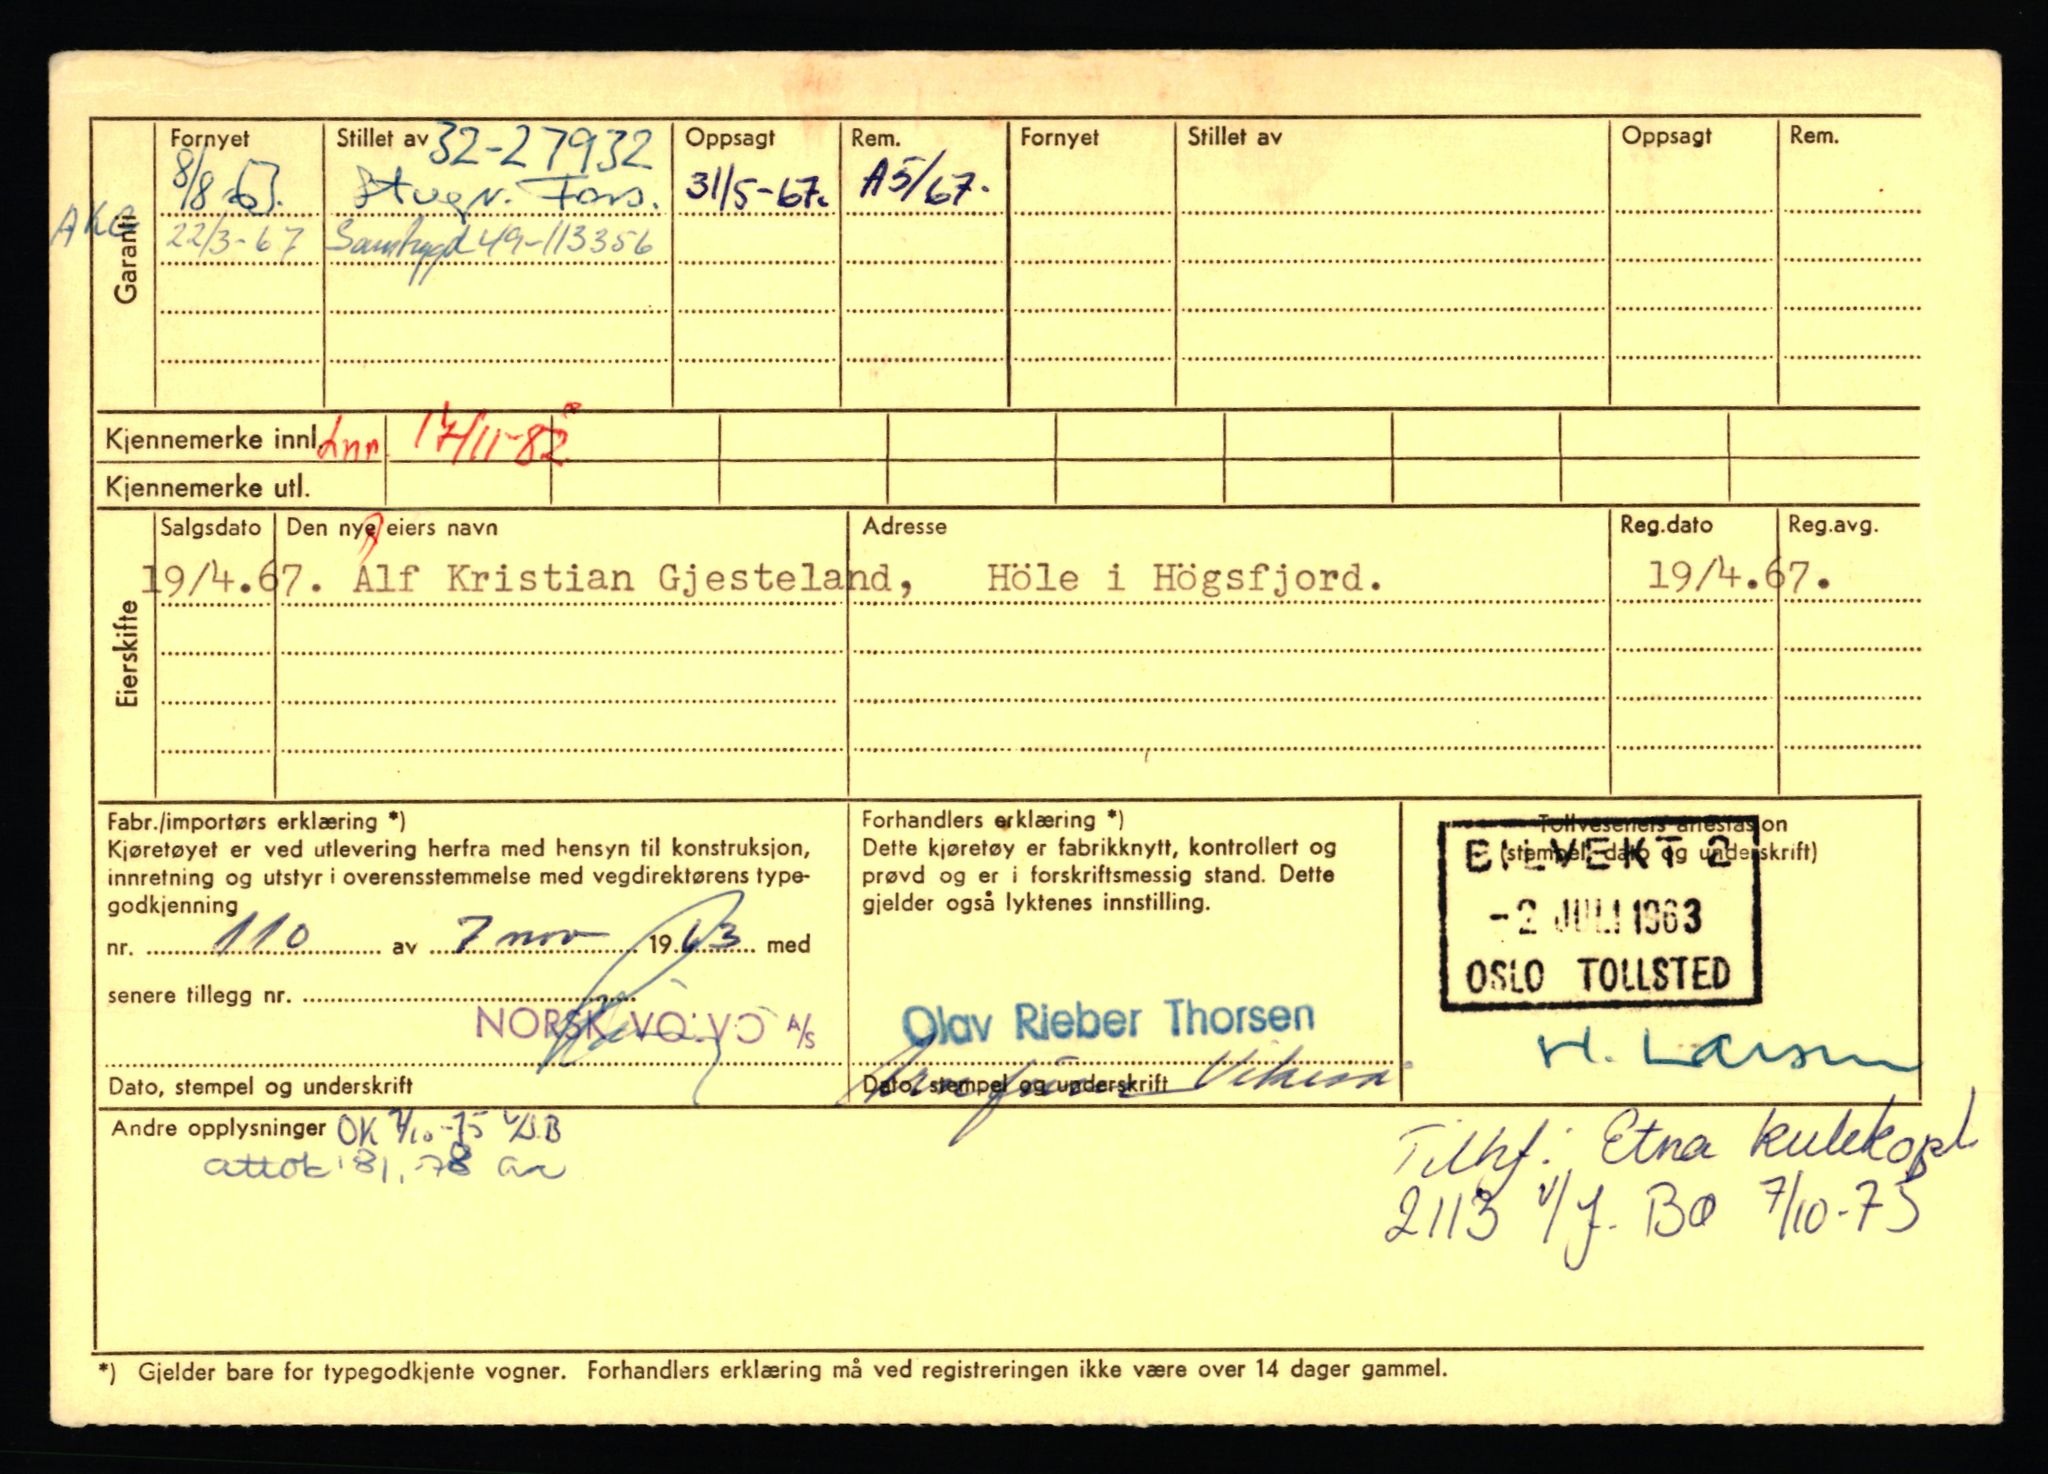 Garanti
Fornyet Stillet av 32-27932 Oppsagt Rem. Fornyet Stillet av Oppsagt Rem.
8/8 63. 31/5-67. A5/67.
22/3-67 Samtrygd 49-113356
Kjennemerke innl. Inn 17/11-82
Kjennemerke utl.
Eierskifte
Salgsdato Den nye eiers navn Adresse Reg.dato Reg.avg.
19/4.67. Alf Kristian Gjesteland, Höle i Högsfjord. 19/4.67.
Fabr./importørs erklæring *)
Kjøretøyet er ved utlevering herfra med hensyn til konstruksjon,
innretning og utstyr i overensstemmelse med vegdirektørens type-
godkjenning
nr. 110 av 7 nov 1963 med
senere tillegg nr.
NORSK VOLVO A/S
Dato, stempel og underskrift
Forhandlers erklæring *)
Dette kjøretøy er fabrikknytt, kontrollert og
prøvd og er i forskriftsmessig stand. Dette
gjelder også lyktenes innstilling.
Olav Rieber Thorsen
Dato, stempel og underskrift
Tollvesenets attestasjon
(stempel, dato og underskrift)
BILVEKT 2
-2 JULI 1963
OSLO TOLLSTED
H. Larsen
Andre opplysninger OK 7/10-75
attok 81, -78
Tilhf: Etna kulekopl
2113 v/J. Bø 7/10-75
*) Gjelder bare for typegodkjente vogner. Forhandlers erklæring må ved registreringen ikke være over 14 dager gammel.